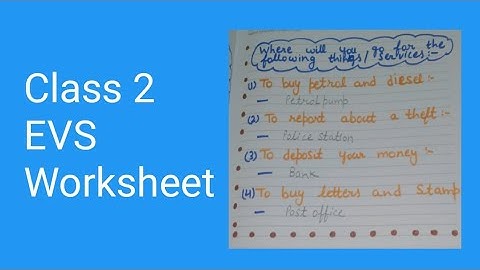 Class 2
EVS
Worksheet
Where will you go for the
following things/services:-
(1) To buy petrol and diesel:-
— Petrol pump
(2) To report about a theft:-
— Police station
(3) To deposit your money:-
— Bank
(4) To buy letters and Stamp
— Post office